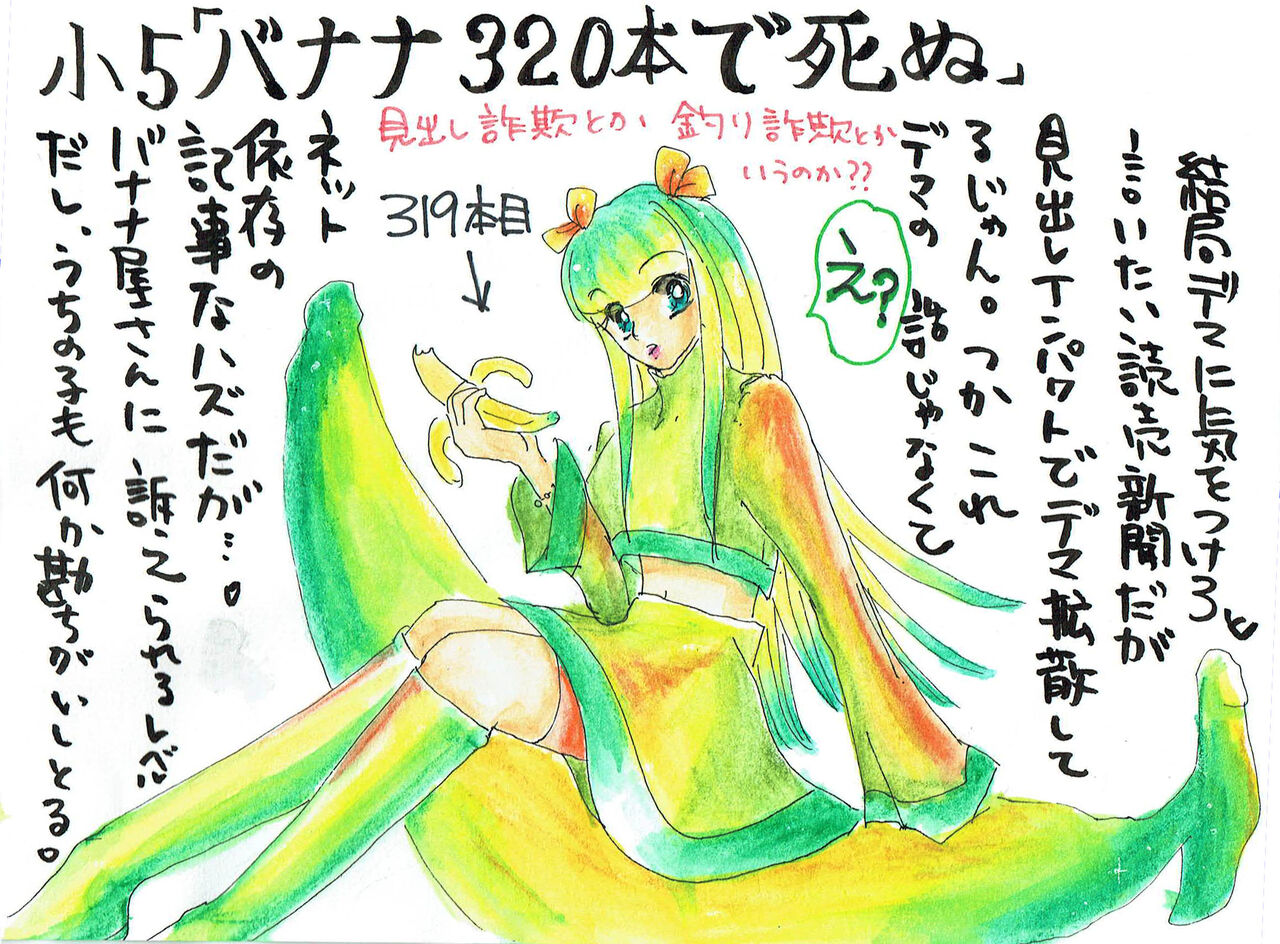 小5「バナナ320本で死ぬ」
見出し詐欺とか 釣り詐欺とか
いうのか??
結局デマに気をつけろと
言いたい読売新聞だが
見出しインパクトでデマ拡散して
るじゃん。つかこれ
デマの話じゃなくて
え?
319本目
ネット
依存の
記事なハズだが…。
バナナ屋さんに訴えられるレベル
だし、うちの子も何か勘ちがいしとる。